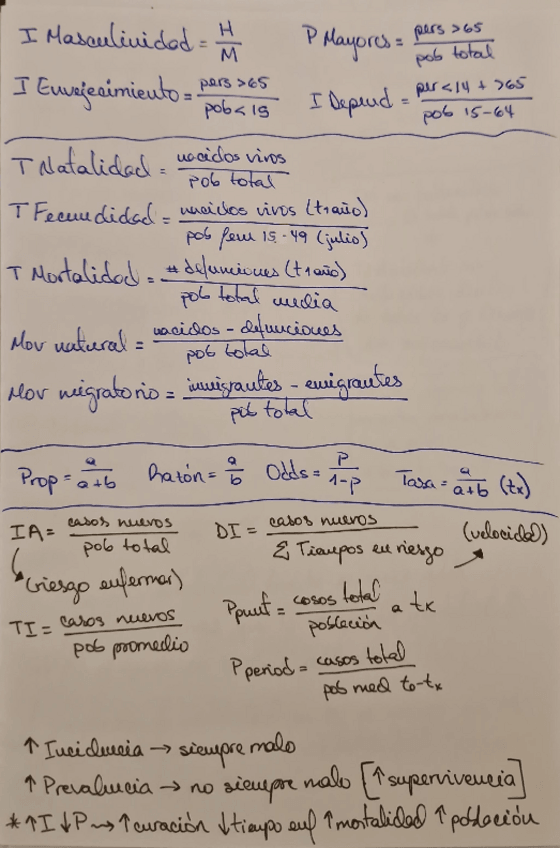 I Masculinidad = H/M P Mayores = pers >65/pob total
I Envejecimiento = pers >65/pob <15 I Depend = per <14 + >65/pob 15-64
T Natalidad = nacidos vivos/pob total
T Fecundidad = nacidos vivos (t1año)/pob fem 15-49 (julio)
T Mortalidad = # defunciones (t1año)/pob total media
Mov natural = nacidos - defunciones/pob total
Mov migratorio = inmigrantes - emigrantes/pob total
Prop = a/a+b Razón = a/b Odds = P/1-P Tasa = a/a+b (tx)
IA = casos nuevos/pob total DI = casos nuevos/Σ Tiempos en riesgo (velocidad)
(riesgo enfermar)
TI = casos nuevos/pob promedio Ppunt = casos total/población a tx
P period = casos total/pob med to-tx
↑ Incidencia → siempre malo
↑ Prevalencia → no siempre malo [↑ supervivencia]
* ↑I ↓P → ↑curación ↓tiempo enf ↑mortalidad ↑población